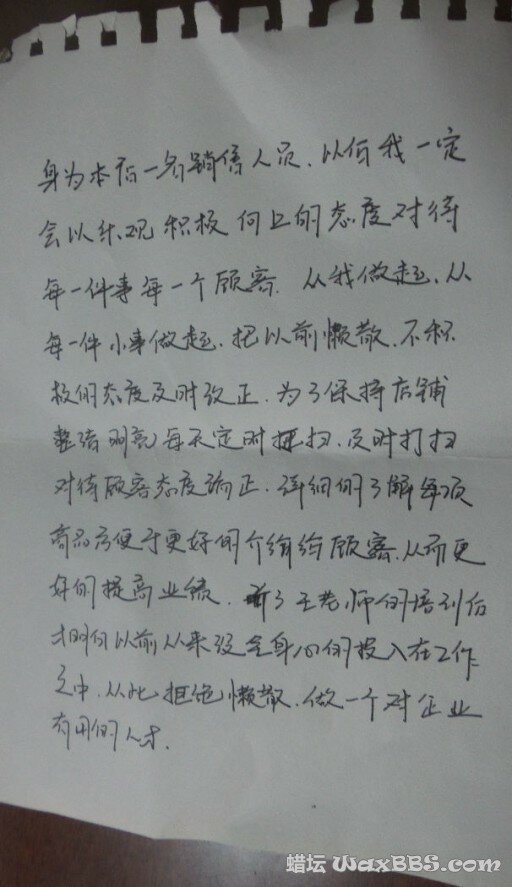 身为本店一名销售人员、以后我一定
会以乐观积极向上的态度对待
每一件事每一个顾客.从我做起、从
每一件小事做起.把以前懒散、不积
极的态度及时改正.为了保持店铺
整洁明亮每天定时打扫,及时打扫
对待顾客态度端正.详细的了解每项
商品方便于更好的介绍给顾客.从而更
好的提高业绩.听了王老师的培训后
才明白以前从来没全身心的投入在工作
之中.从此拒绝懒散.做一个对企业
有用的人才.
蜡坛 WaxBBS.com